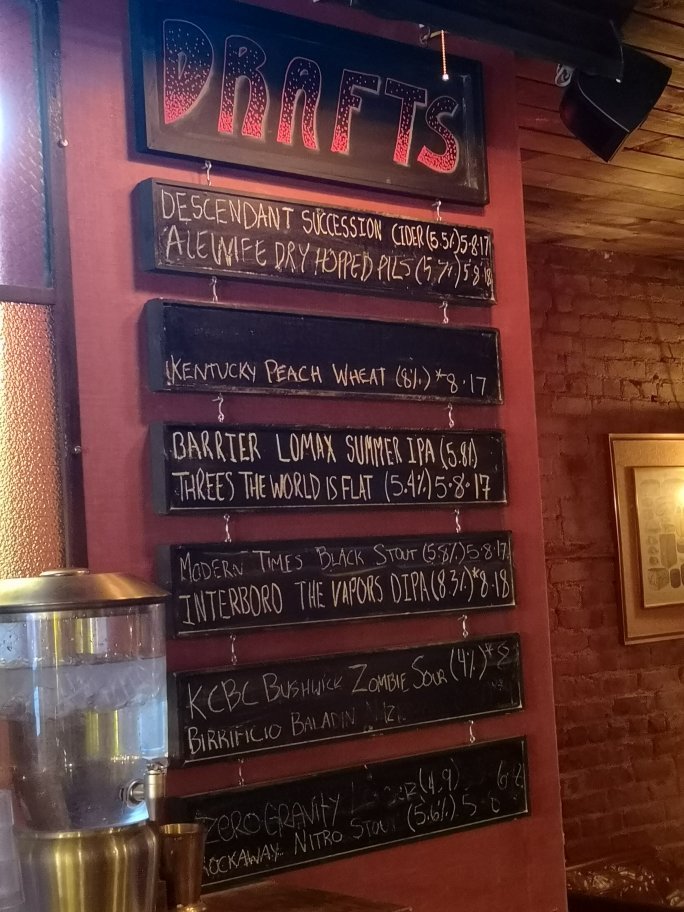 DRAFTS
DESCENDANT SUCCESSION CIDER (5.5%) 5·8·17
ALEWIFE DRY HOPPED PILS (5.7%) 5·8·18
KENTUCKY PEACH WHEAT (8%) *8·17
BARRIER LOMAX SUMMER IPA (5.8%)
THREES THE WORLD IS FLAT (5.4%) 5·8·17
MODERN TIMES BLACK STOUT (5.8%) 5·8·17
INTERBORO THE VAPORS DIPA (8.3%) *8·18
KCBC BUSHWICK ZOMBIE SOUR (4%) *
BIRRIFICIO BALADIN
ZERO GRAVITY (4.9)
ROCKAWAY NITRO STOUT (5.6%)